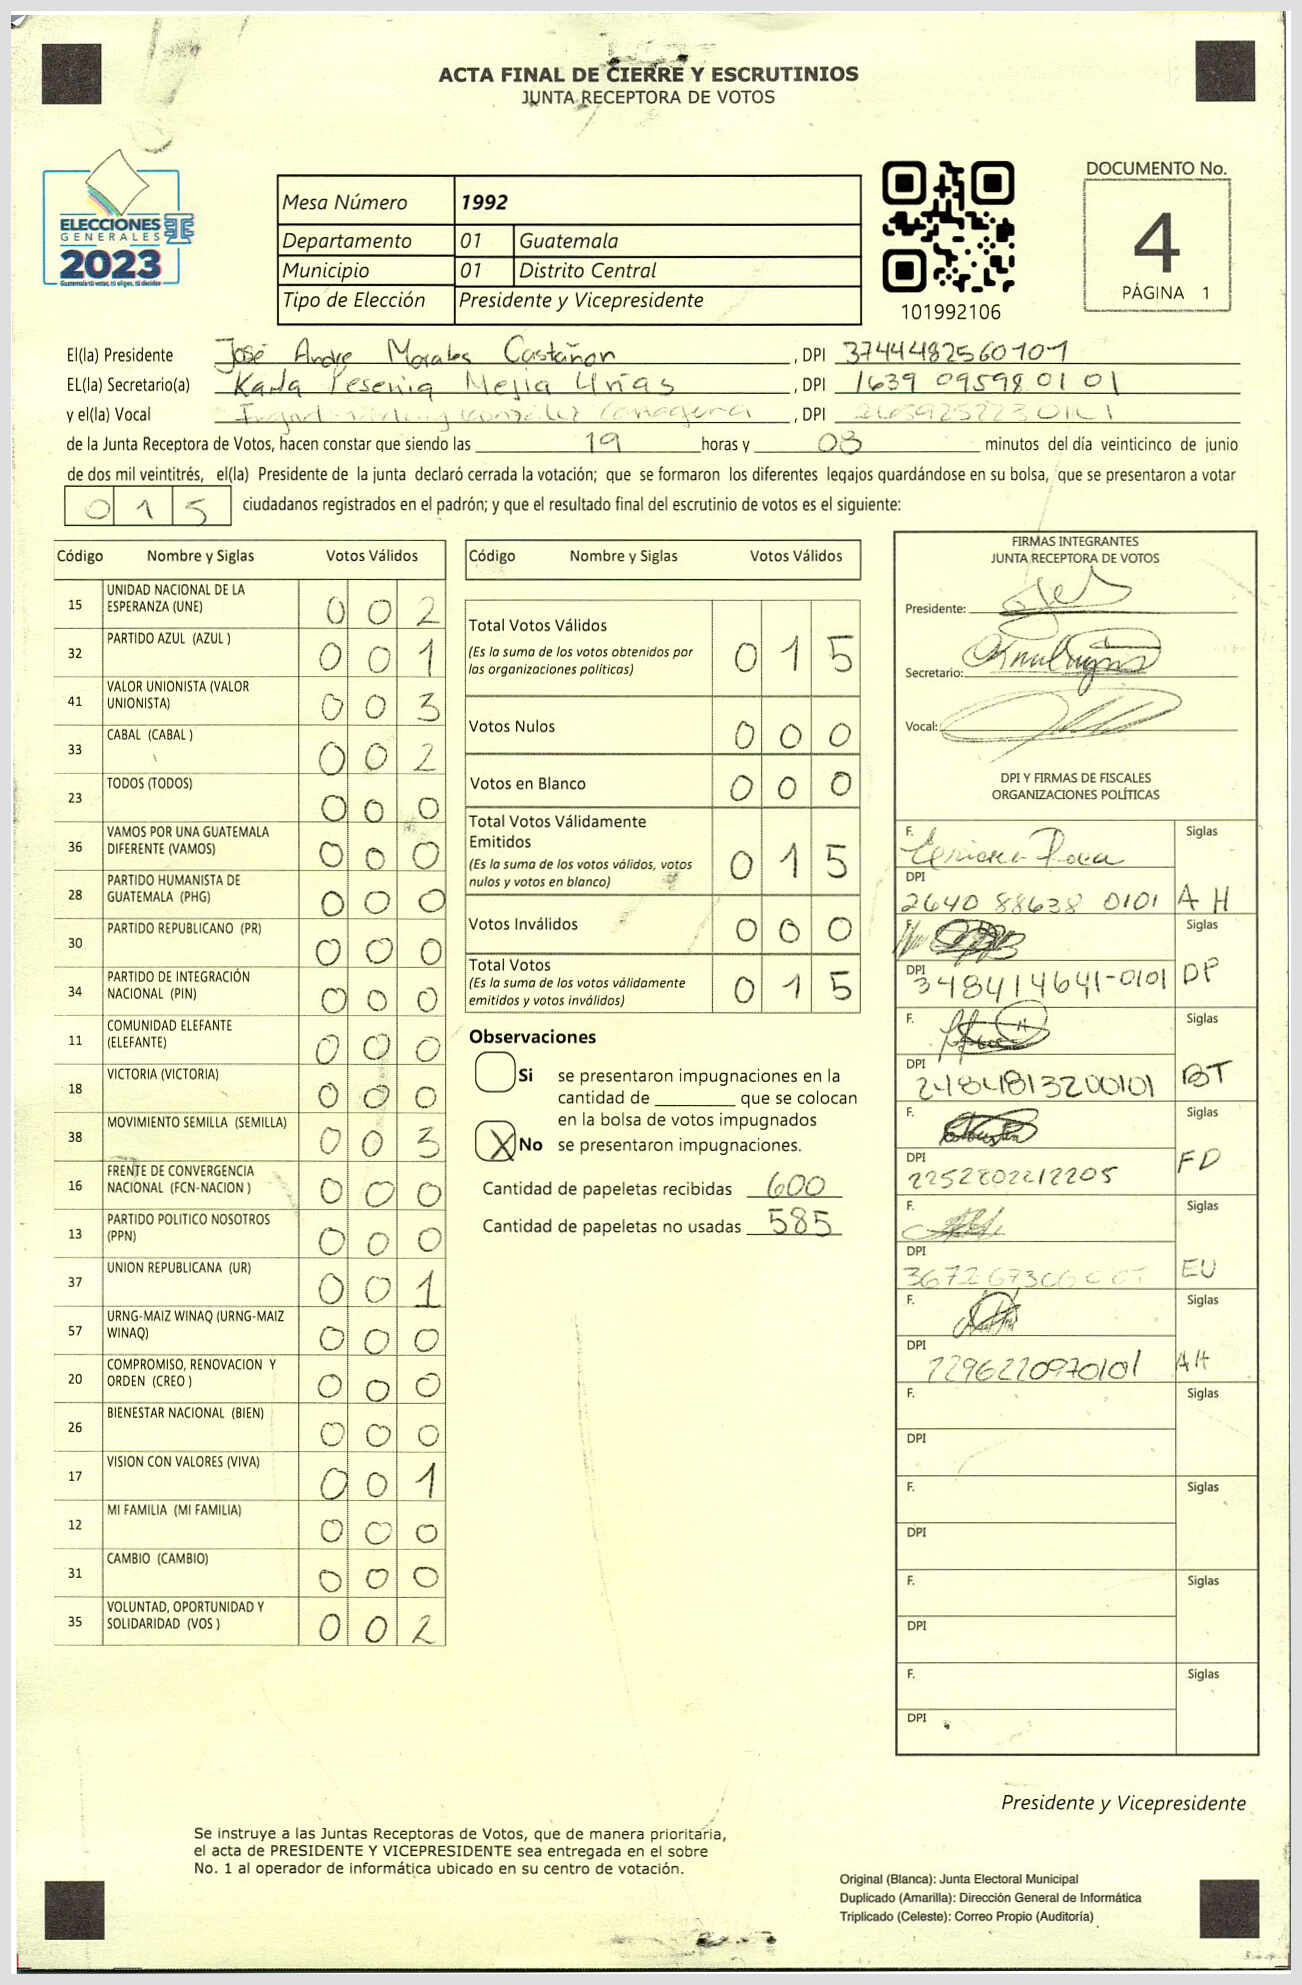 ACTA FINAL DE CIERRE Y ESCRUTINIOS
JUNTA RECEPTORA DE VOTOS
ELECCIONES
GENERALES
2023
Guatemala tú votas, tú eliges, tú decides
Mesa Número 1992
Departamento 01 Guatemala
Municipio 01 Distrito Central
Tipo de Elección Presidente y Vicepresidente
101992106
DOCUMENTO No.
4
PÁGINA 1
El(la) Presidente José Andre Morales Castañon , DPI 3744482560101
EL(la) Secretario(a) Karla Yesenia Mejia Urías , DPI 1639 09598 01 01
y el(la) Vocal González , DPI
de la Junta Receptora de Votos, hacen constar que siendo las 19 horas y 03 minutos del día veinticinco de junio
de dos mil veintitrés, el(la) Presidente de la junta declaró cerrada la votación; que se formaron los diferentes legajos guardándose en su bolsa, que se presentaron a votar
015 ciudadanos registrados en el padrón; y que el resultado final del escrutinio de votos es el siguiente:
Código Nombre y Siglas Votos Válidos
15 UNIDAD NACIONAL DE LA
ESPERANZA (UNE) 0 0 2
32 PARTIDO AZUL (AZUL ) 0 0 1
41 VALOR UNIONISTA (VALOR
UNIONISTA) 0 0 3
33 CABAL (CABAL ) 0 0 2
23 TODOS (TODOS) 0 0 0
36 VAMOS POR UNA GUATEMALA
DIFERENTE (VAMOS) 0 0 0
28 PARTIDO HUMANISTA DE
GUATEMALA (PHG) 0 0 0
30 PARTIDO REPUBLICANO (PR) 0 0 0
34 PARTIDO DE INTEGRACIÓN
NACIONAL (PIN) 0 0 0
11 COMUNIDAD ELEFANTE
(ELEFANTE) 0 0 0
18 VICTORIA (VICTORIA) 0 0 0
38 MOVIMIENTO SEMILLA (SEMILLA) 0 0 3
16 FRENTE DE CONVERGENCIA
NACIONAL (FCN-NACION ) 0 0 0
13 PARTIDO POLITICO NOSOTROS
(PPN) 0 0 0
37 UNION REPUBLICANA (UR) 0 0 1
57 URNG-MAIZ WINAQ (URNG-MAIZ
WINAQ) 0 0 0
20 COMPROMISO, RENOVACION Y
ORDEN (CREO ) 0 0 0
26 BIENESTAR NACIONAL (BIEN) 0 0 0
17 VISION CON VALORES (VIVA) 0 0 1
12 MI FAMILIA (MI FAMILIA) 0 0 0
31 CAMBIO (CAMBIO) 0 0 0
35 VOLUNTAD, OPORTUNIDAD Y
SOLIDARIDAD (VOS ) 0 0 2
Código Nombre y Siglas Votos Válidos
Total Votos Válidos 0 1 5
(Es la suma de los votos obtenidos por
las organizaciones políticas)
Votos Nulos 0 0 0
Votos en Blanco 0 0 0
Total Votos Válidamente
Emitidos 0 1 5
(Es la suma de los votos válidos, votos
nulos y votos en blanco)
Votos Inválidos 0 0 0
Total Votos 0 1 5
(Es la suma de los votos válidamente
emitidos y votos inválidos)
Observaciones
Si se presentaron impugnaciones en la
cantidad de ________ que se colocan
en la bolsa de votos impugnados
X No se presentaron impugnaciones.
Cantidad de papeletas recibidas 600
Cantidad de papeletas no usadas 585
FIRMAS INTEGRANTES
JUNTA RECEPTORA DE VOTOS
Presidente:
Secretario:
Vocal:
DPI Y FIRMAS DE FISCALES
ORGANIZACIONES POLÍTICAS
F. Siglas
DPI
2640 88638 0101 A H
F. Siglas
DPI
348414641-0101 DP
F. Siglas
DPI
2484813200101 BT
F. Siglas
DPI
2252802212205 FD
F. Siglas
DPI
EU
F. Siglas
DPI
2296220970101 AH
F. Siglas
DPI
F. Siglas
DPI
F. Siglas
DPI
F. Siglas
DPI
Presidente y Vicepresidente
Se instruye a las Juntas Receptoras de Votos, que de manera prioritaria,
el acta de PRESIDENTE Y VICEPRESIDENTE sea entregada en el sobre
No. 1 al operador de informática ubicado en su centro de votación.
Original (Blanca): Junta Electoral Municipal
Duplicado (Amarilla): Dirección General de Informática
Triplicado (Celeste): Correo Propio (Auditoría)